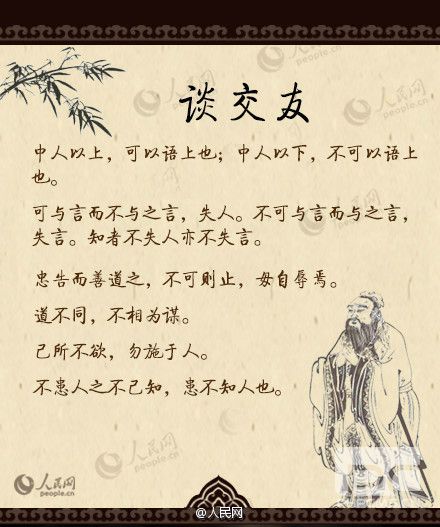 人民网
people.cn
谈交友
中人以上，可以语上也；中人以下，不可以语上
也。
可与言而不与之言，失人。不可与言而与之言，
失言。知者不失人亦不失言。
忠告而善道之，不可则止，毋自辱焉。
道不同，不相为谋。
己所不欲，勿施于人。
不患人之不己知，患不知人也。
人民网
people.cn
@人民网